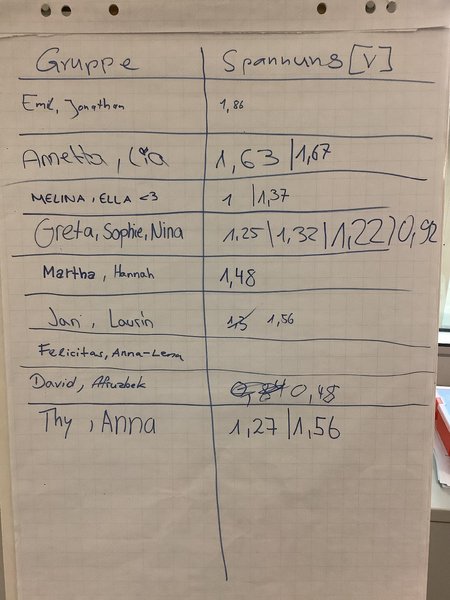 Gruppe Spannung [V]
Emil, Jonathan 1,86
Annetta, Lia 1,63 | 1,67
MELINA, ELLA <3 1 | 1,37
Greta, Sophie, Nina 1,25 | 1,32 | 1,22 | 0,92
Martha, Hannah 1,48
Jari, Laurin 1,56
Felicitas, Anna-Lena
David, 0,48
Thy, Anna 1,27 | 1,56